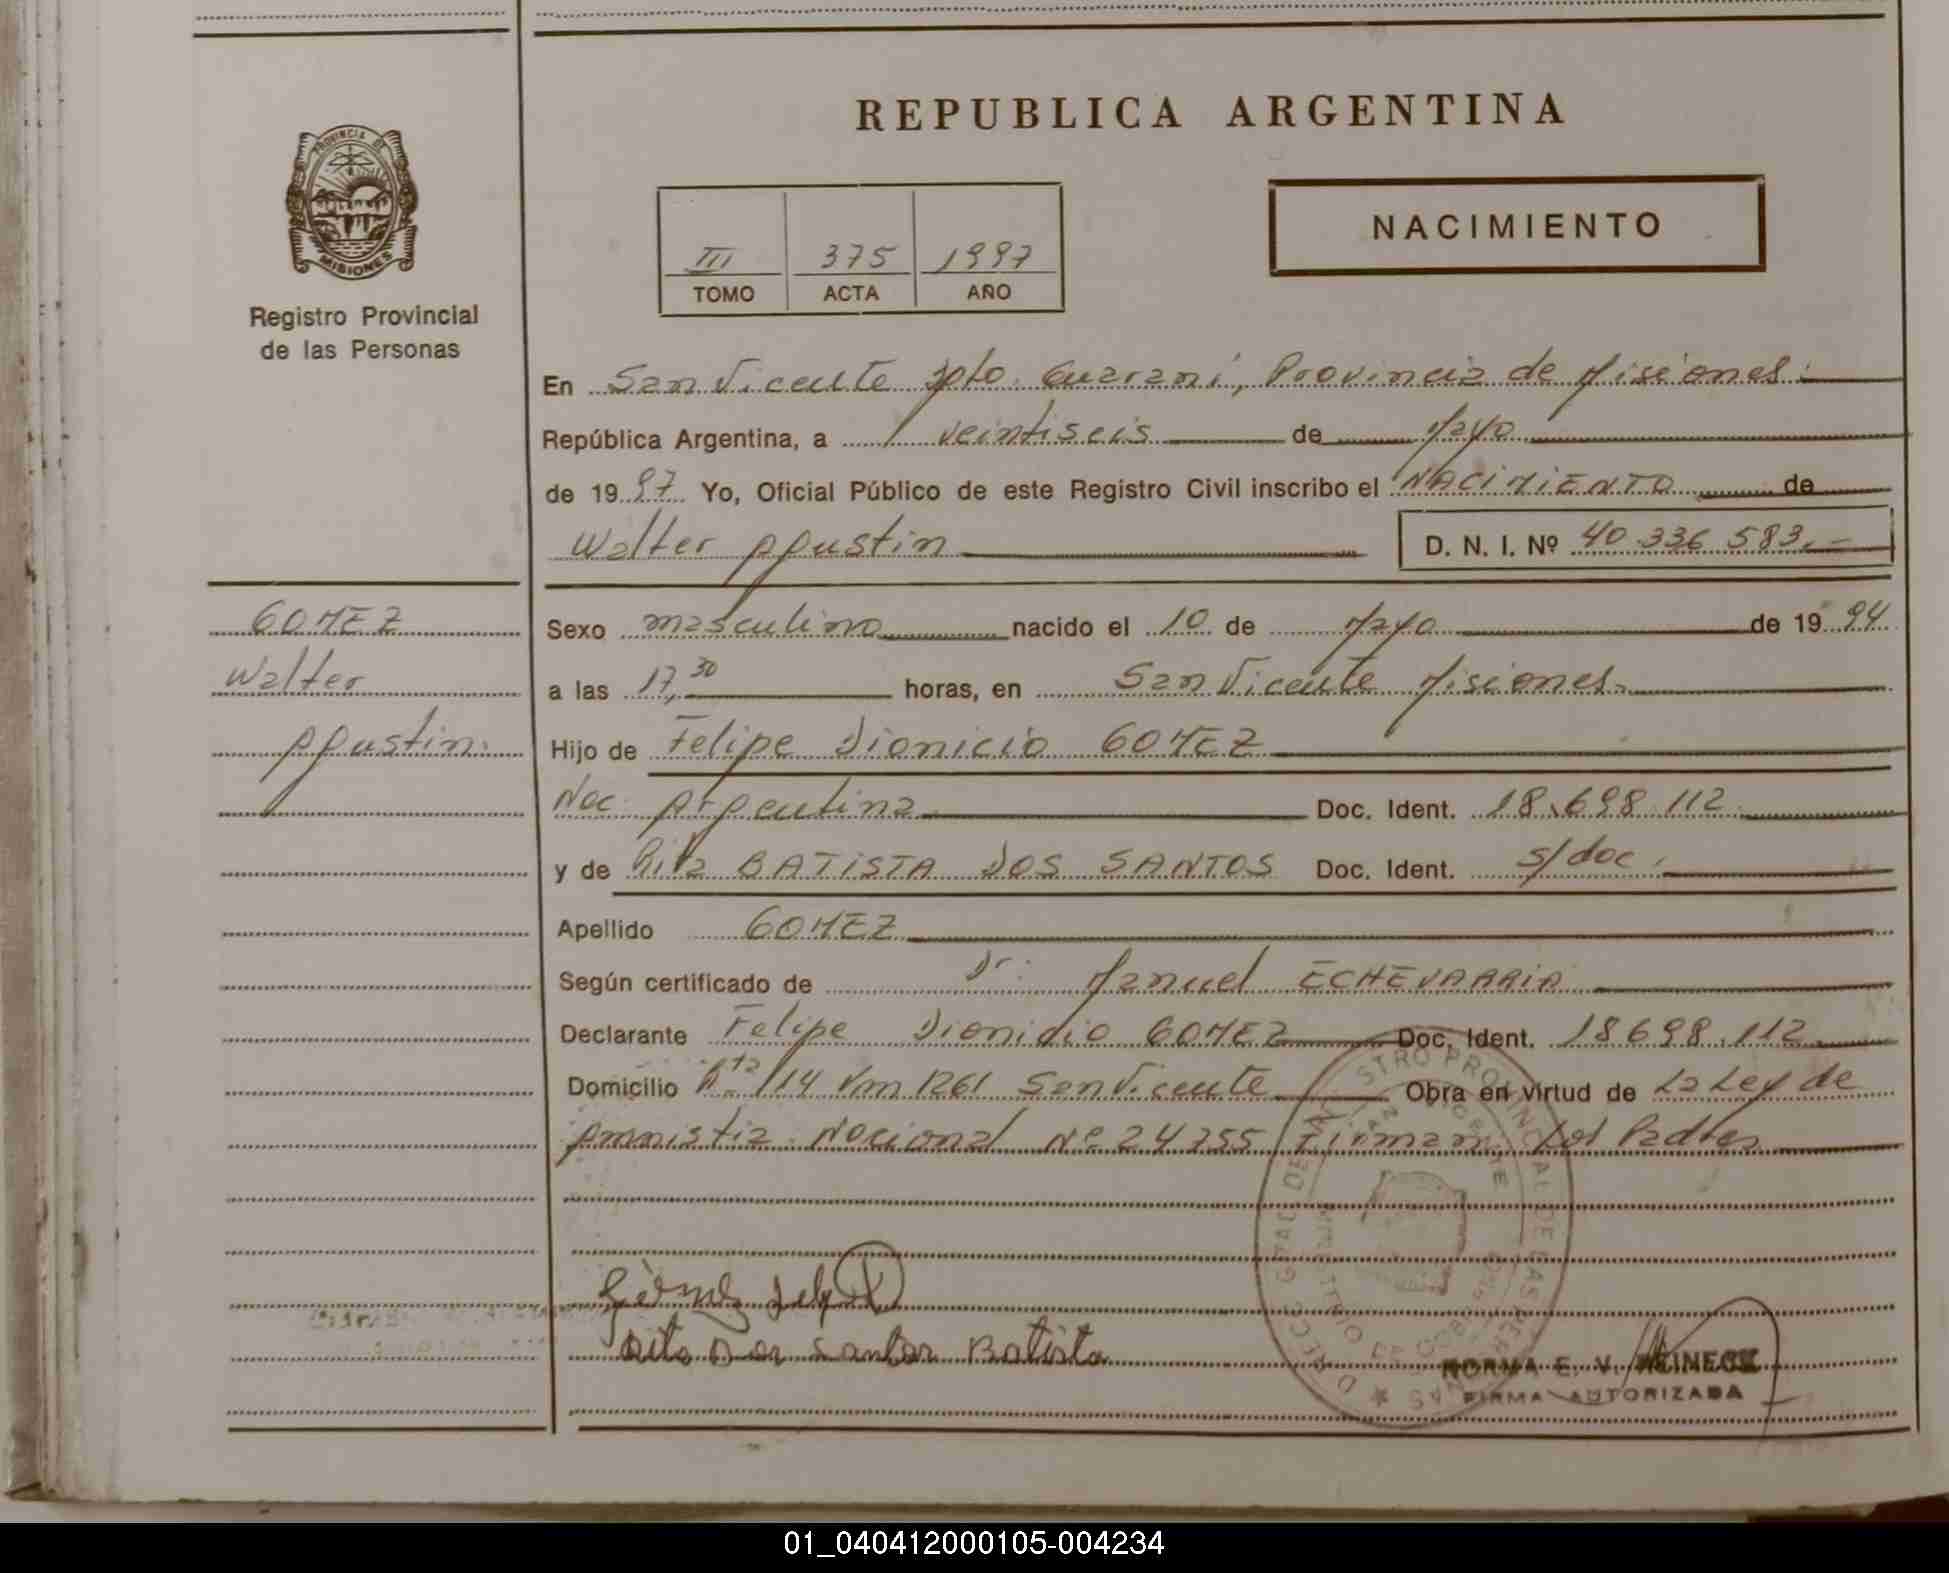 REPUBLICA ARGENTINA
PROVINCIA DE
MISIONES
Registro Provincial
de las Personas
NACIMIENTO
III 375 1997
TOMO ACTA AÑO
En San Vicente Dpto. Guaraní, Provincia de Misiones.
República Argentina, a veintiseis de Mayo
de 1997 Yo, Oficial Público de este Registro Civil inscribo el NACIMIENTO de
Walter Agustin D. N. I. Nº 40.336.583.-
GOMEZ
Walter
Agustin.
Sexo masculino nacido el 10 de Mayo de 1994
a las 17,30 horas, en San Vicente Misiones.
Hijo de Felipe Dionicio GOMEZ
Nac. Argentina. Doc. Ident. 18.698.112
y de Rita BATISTA DOS SANTOS Doc. Ident. s/doc.
Apellido GOMEZ
Según certificado de Dr. Manuel ECHEVARRIA
Declarante Felipe Dionicio GOMEZ Doc. Ident. 18698.112
Domicilio Rta 14 Km 1261 San Vicente Obra en virtud de La Ley de
Amnistia Nacional Nº 24755 Firman Los Padres
Rita Dos Santos Batista
NORMA E. V. REINECK
FIRMA AUTORIZADA
01_040412000105-004234